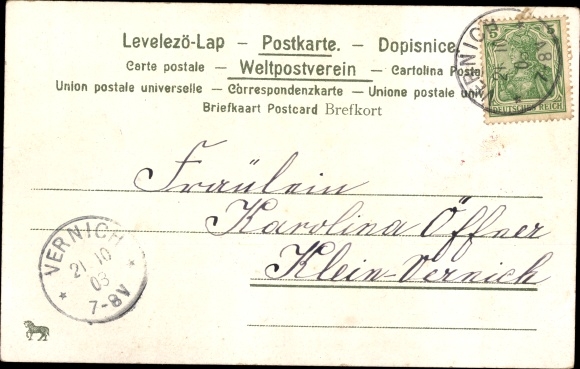 Levelező-Lap – Postkarte. – Dopisnice.
Carte postale – Weltpostverein – Cartolina Postal
Union postale universelle – Correspondenzkarte – Unione postale univ
Briefkaart Postcard Brefkort
5 5
DEUTSCHES REICH
VERNICH
21 10
03
7-8V
Fräulein
Karolina Öffner
Klein-Vernich
VERNICH
21 10
03
7-8V